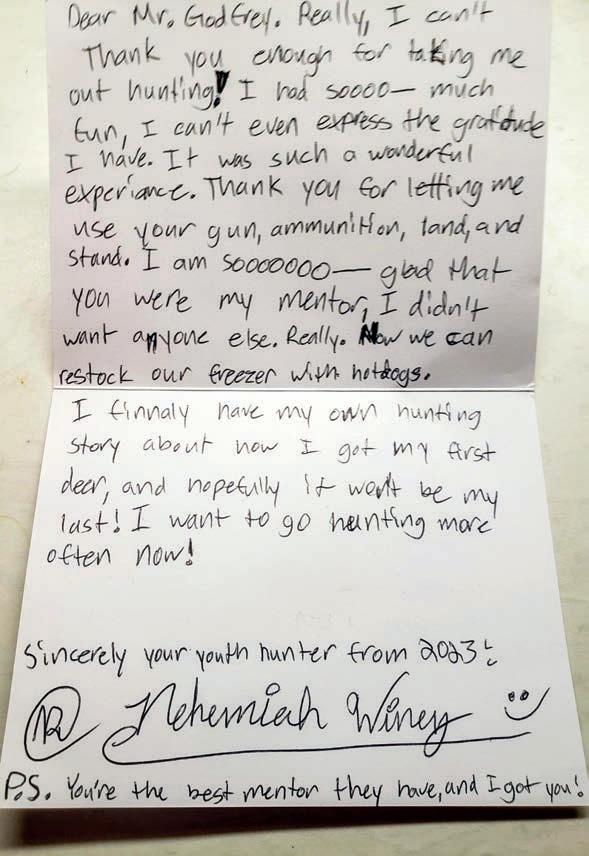 Dear Mr. Godfrey. Really, I can't
Thank you enough for taking me
out hunting! I had soooo— much
fun, I can't even express the gratidude
I have. It was such a wonderful
experiance. Thank you for letting me
use your gun, ammunition, land, and
stand. I am soooooooo— glad that
you were my mentor, I didn't
want anyone else. Really. Now we can
restock our freezer with hotdogs.
I finnaly have my own hunting
story about how I got my first
deer, and hopefully it won't be my
last! I want to go hunting more
often now!
Sincerely your youth hunter from 2023:
Nehemiah Winey
P.S. You're the best mentor they have, and I got you!